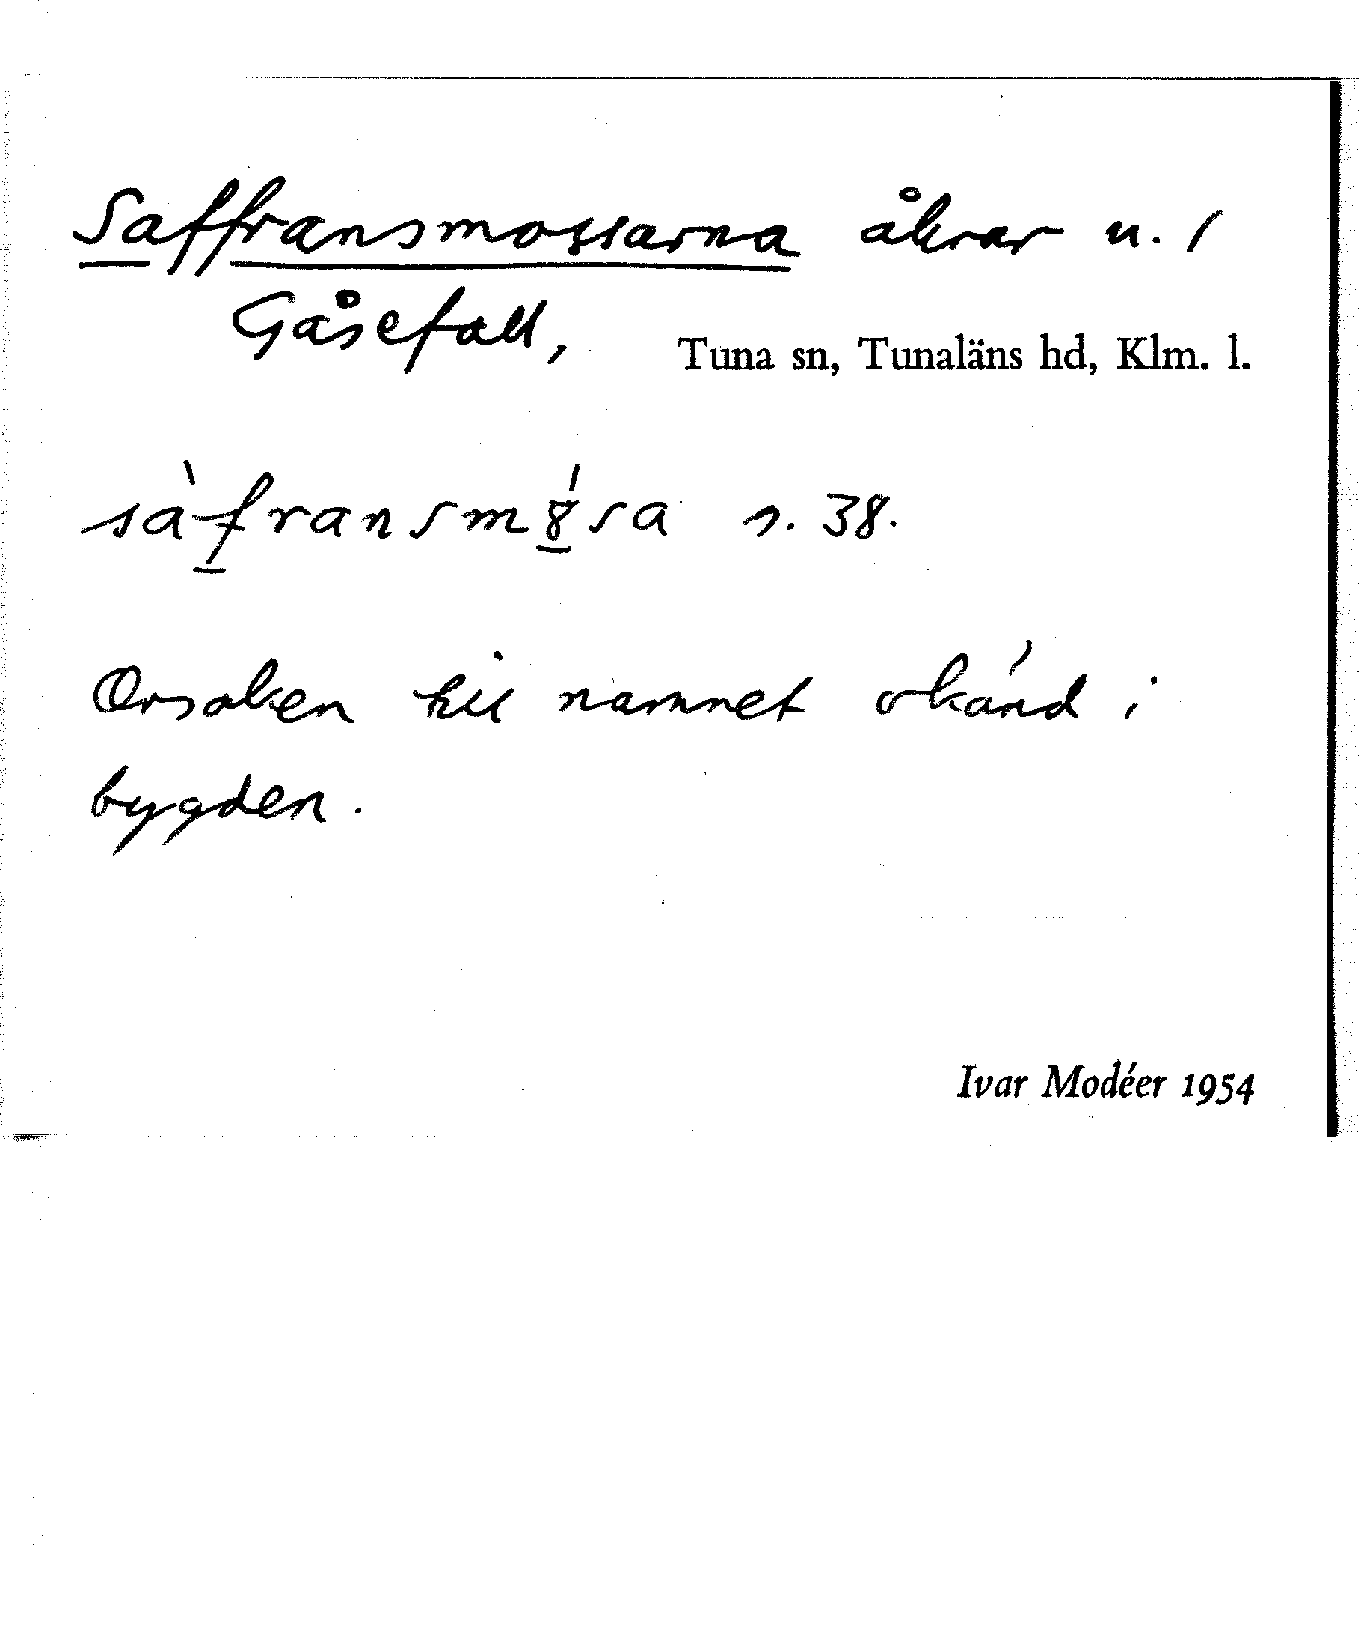 Saffransmossarna åkrar u. /
Gåsefall, Tuna sn, Tunaläns hd, Klm. l.
sàfransm8́sa n. 38.
Orsaken till namnet okänd i
bygden.
Ivar Modéer 1954